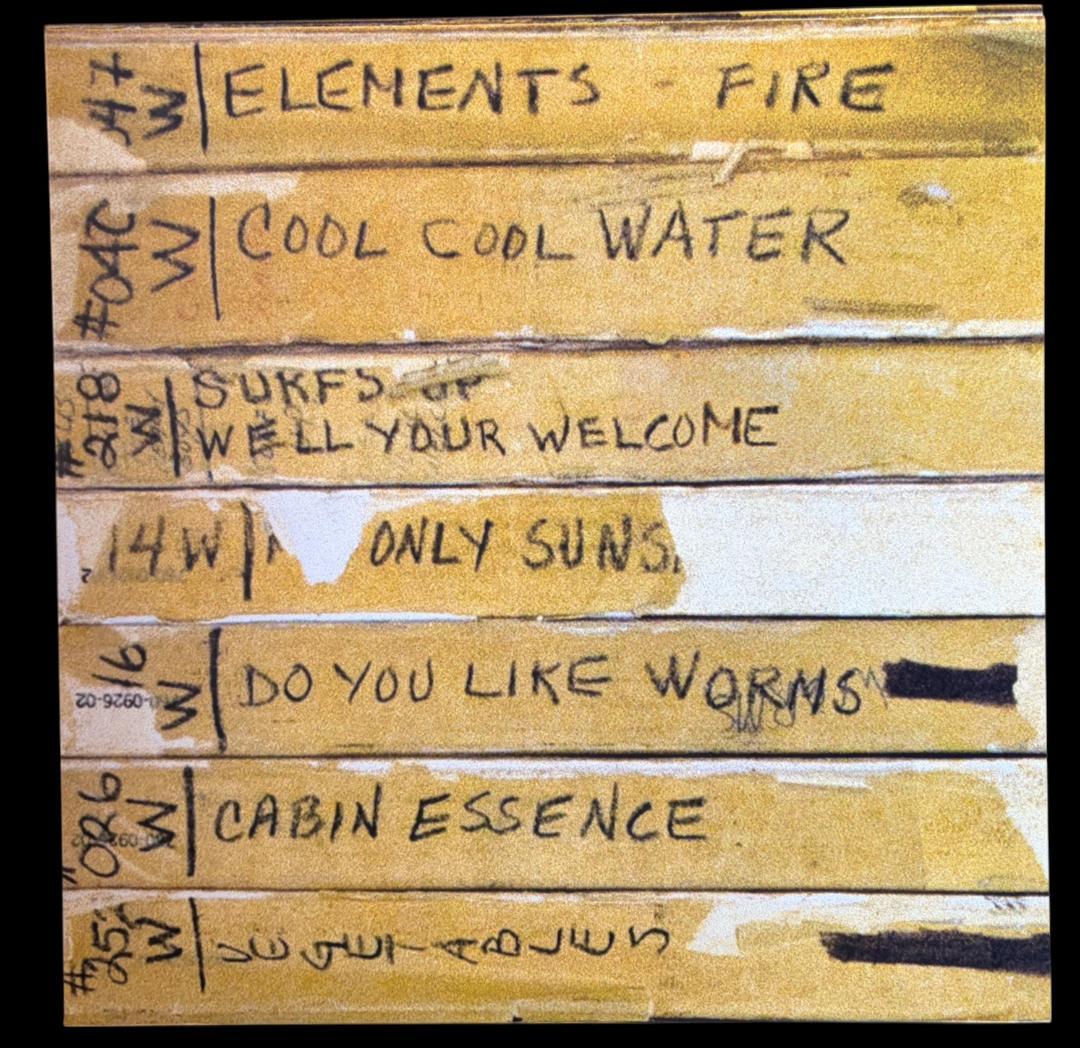 47 W ELEMENTS - FIRE
#040 W COOL COOL WATER
#218 W SURFS UP
WELL YOUR WELCOME
14 W ONLY SUNS
16 W DO YOU LIKE WORMS
0926-02
#026 W CABIN ESSENCE
#25 W VEGETABLES